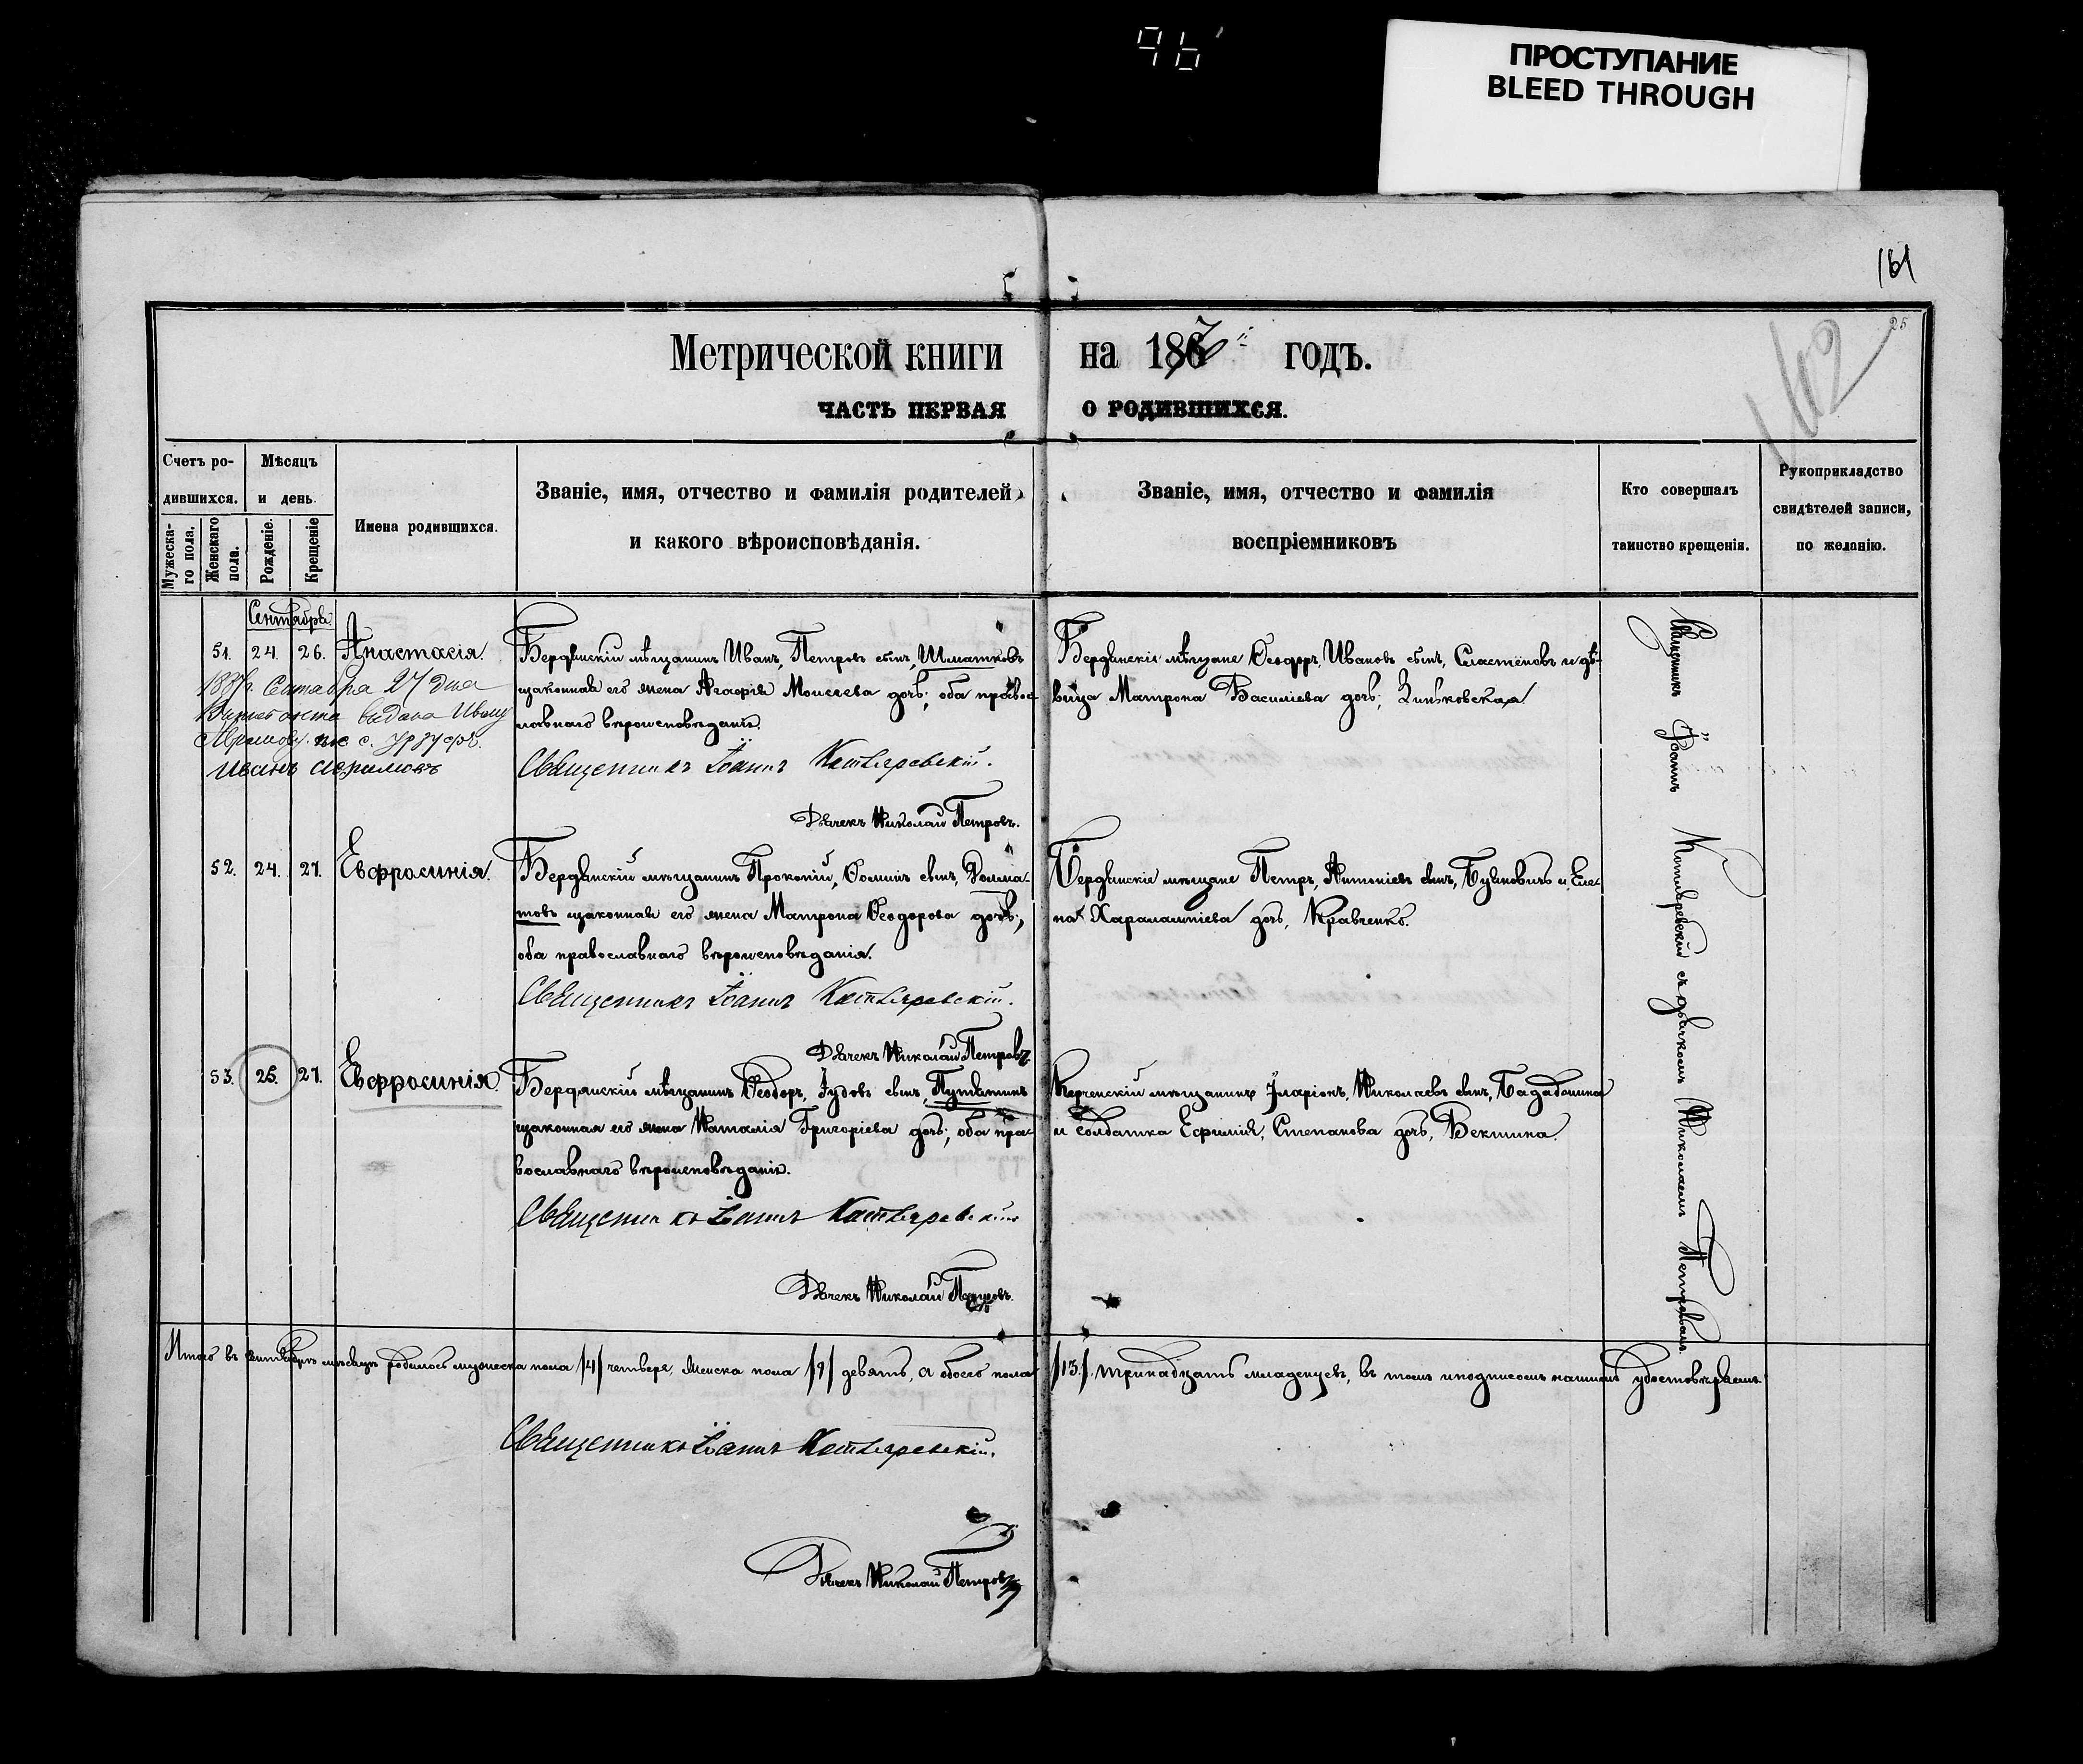 96
ПРОСТУПАНИЕ
BLEED THROUGH
161
25
162
Метрической книги на 1867й годъ.
ЧАСТЬ ПЕРВАЯ О РОДИВШИХСЯ.
Счетъ ро-
дившихся.
Мужеска-
го пола.
Женскаго
пола.
Мѣсяцъ
и день.
Рожденіе.
Крещеніе
Имена родившихся.
Званіе, имя, отчество и фамилія родителей,
и какого вѣроисповѣданія.
Званіе, имя, отчество и фамилія
воспріемниковъ
Кто совершалъ
таинство крещенія.
Рукоприкладство
свидѣтелей записи,
по желанію.
Сентябрь.
51. 24. 26. Анастасія.
Бердянскій мѣщанинъ Иванъ, Петровъ сынъ, Шматковъ
законная его жена Агафія Моисеева дочь; оба правос-
лавнаго вѣроисповѣданія.
Священникъ Іоаннъ Котляревскій.
Дьячекъ Николай Петровъ.
Бердянскіе мѣщане Ѳеодоръ, Ивановъ сынъ, Сластёновъ и дѣ-
вица Матрона Васильева дочь, Зиньковская.
Сентабра 27 дна
видана Ивану
с. Урзуфъ.
Иванъ Аврамовъ
52. 24. 27. Евфросинія.
Бердянскій мѣщанинъ Прокопій, Ѳоминъ сынъ, Долма-
товъ законная его жена Матрона Ѳеодорова дочь;
оба православнаго вѣроисповѣданія.
Священникъ Іоаннъ Котляревскій.
Дьячекъ Николай Петровъ.
Бердянскіе мѣщане Петръ, Антоніевъ сынъ, Буяновичъ и Еле-
на Харалампіева дочь, Кравченко.
53. 25. 27. Евфросинія.
Бердянскій мѣщанинъ Ѳеодоръ, Іудовъ сынъ, Путятинъ
законная его жена Наталія Григоріева дочь; оба пра-
вославнаго вѣроисповѣданія.
Священникъ Іоаннъ Котляревскій
Дьячекъ Николай Петровъ.
Керченскій мѣщанинъ Іларіонъ, Николаевъ сынъ,
и солдатка Ефимія, Степанова дочь, Бектина.
Священникъ Іоаннъ Котляревскій съ дьячкомъ Николаемъ Петровымъ.
Итого въ сентябрѣ мѣсяцѣ родилось мужеска пола /4/ четверо, женска пола /9/ девять, а обоего пола /13/. тринадцать младенцевъ, въ томъ и подписомъ нашимъ удостовѣряемъ.
Священникъ Іоаннъ Котляревскій.
Дьячекъ Николай Петровъ